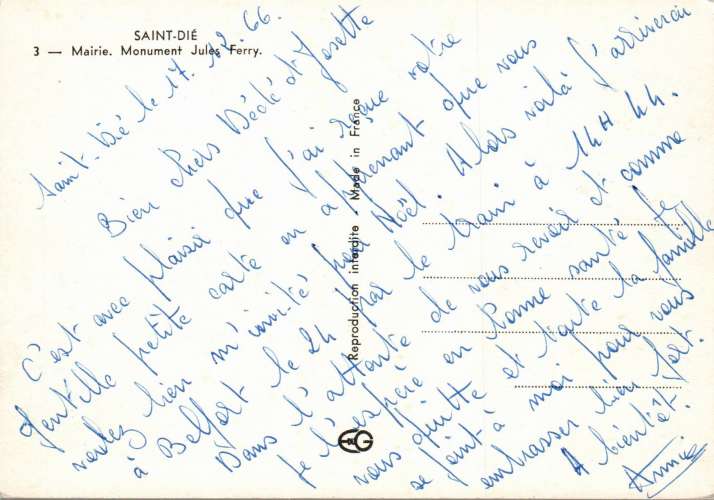 SAINT-DIÉ
3 — Mairie. Monument Jules Ferry.
Saint-Dié le 17.12.66.
Bien chers Dédé et Josette
C'est avec plaisir que j'ai reçue votre
gentille petite carte en apprenant que vous
voulez bien m'invité pour Noël. Alors voilà j'arriverai
à Belfort le 24 par le train à 14H 44.
Dans l'attente de vous revoir et comme
je l'espère en bonne santé je
vous quitte et toute la famille
se joint à moi pour vous
embrasser bien fort.
A bientôt.
Annie
Reproduction interdite - Made in France